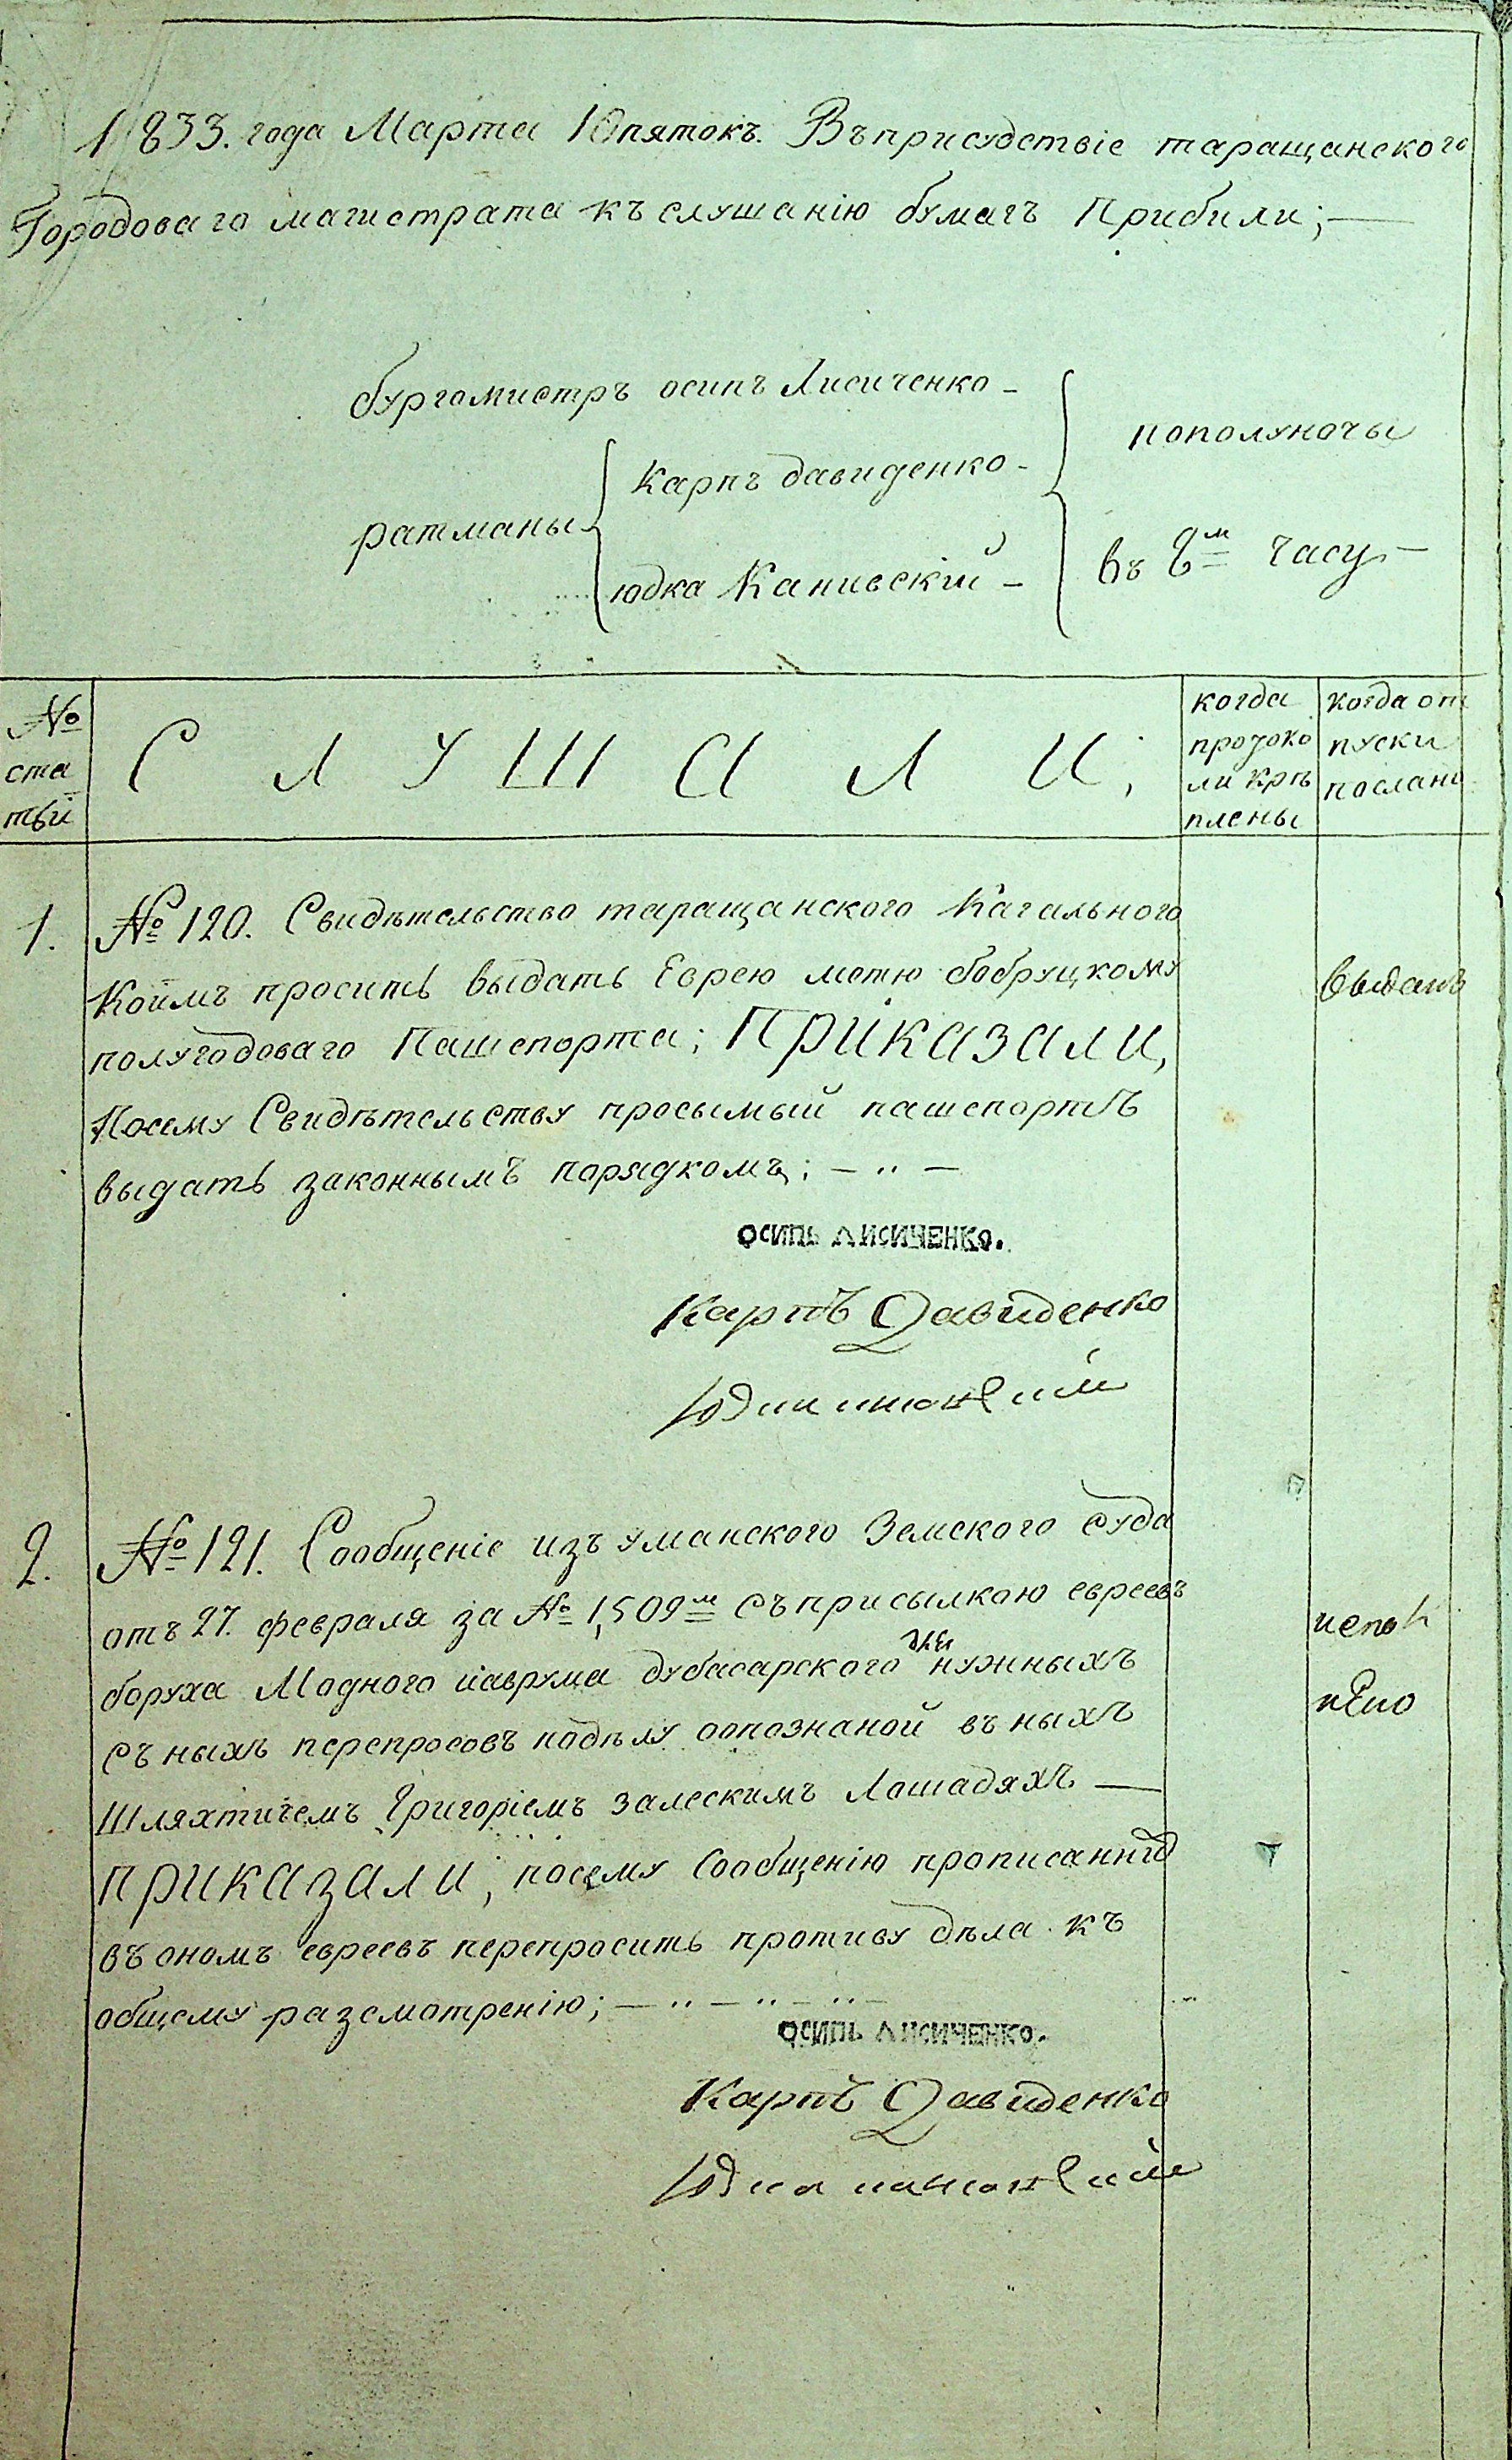 1833. года Марта 10 пятокъ. Въ присудствіе таращанского
Городоваго магистрата къ слушанію бумагъ Прибили;
бургомистръ осипъ Лисиченко
ратманы
Карпъ давиденко
юдка Каниевскій
пополуночы
въ 8м часу
№ ста тьи
СЛУШАЛИ,
когда протоко ли крѣ плены
когда от пуски послани
1.
№ 120. Свидѣтельство таращанского Кагального
Коимъ просить выдать Еврею мотю бобруцкому
полугодоваго Пашепорта; Приказали,
Посему Свидѣтельству просымый пашепортъ
выдать законнымъ порядкомъ;
выданъ
ОСИПЬ ЛИСИЧЕНКО.
Карпъ Давиденко
2.
№ 121. Сообщеніе изъ уманского Земского суда
отъ 27. февраля за № 1,509м съ присылкою евреевъ
боруха Модного иаврума дубасарского для нужныхъ
съ ныхъ перепросовъ подѣлу оопознаной въ ныхъ
Шляхтичемъ Григоріемъ залескимъ Лошадяхъ
приказали, посему Сообщенію прописанных
въ ономъ евреевъ перепросить противу дѣла къ
общему разсмотренію;
ОСИПЬ ЛИСИЧЕНКО.
Карпъ Давиденко